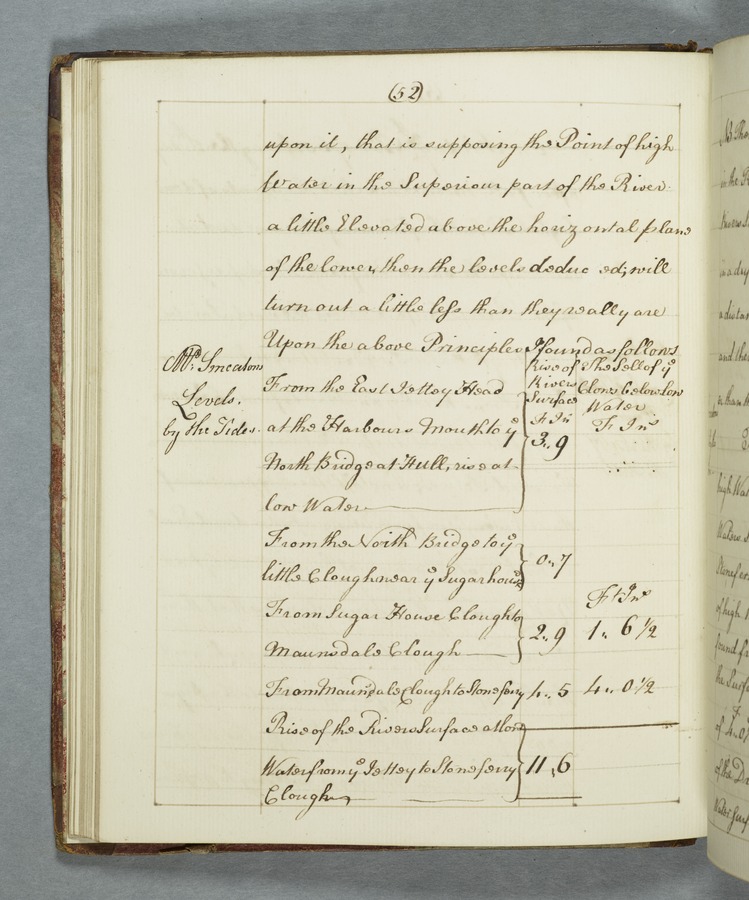 (52)
upon it, that is supposing the Point of high
Water in the Superiour part of the River
a little Elevated above the horizontal plane
of the lower, then the levels deduc ed; will
turn out a little less than they really are
Upon the above Principles I found as follows
Mr. Smeatons
Levels.
by the Tides.
Rise of
Rivers
Surface
F In
The Sell of ye
Clows below Low
Water
F Ins
From the East Jettey Head
at the Harbours Mouth to ye
North Bridge at Hull, rise at
low Water
3.. 9
From the North Bridge to ye
little Clough near ye Sugar house
0.. 7
Ft Ins
From Sugar House Clough to
Maunsdale Clough
2.. 9 1.. 6 1/2
From Maunsdale Clough to Stoneferry 4.. 5 4.. 0 1/2
Rise of the Rivers Surface at low
Water from ye Jettey to Stoneferry 11.. 6
Clough